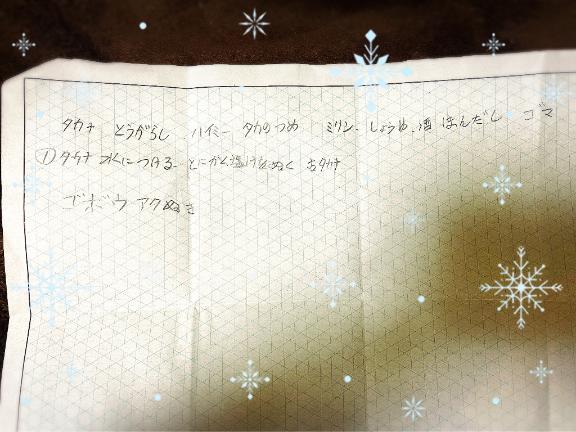 タカナ とうがらし ハイミー タカのつめ ミリン しょうゆ 酒 ほんだし ゴマ
① タカナ 水につける とにかく塩けをぬく 古タカナ
ゴボウ アクぬき